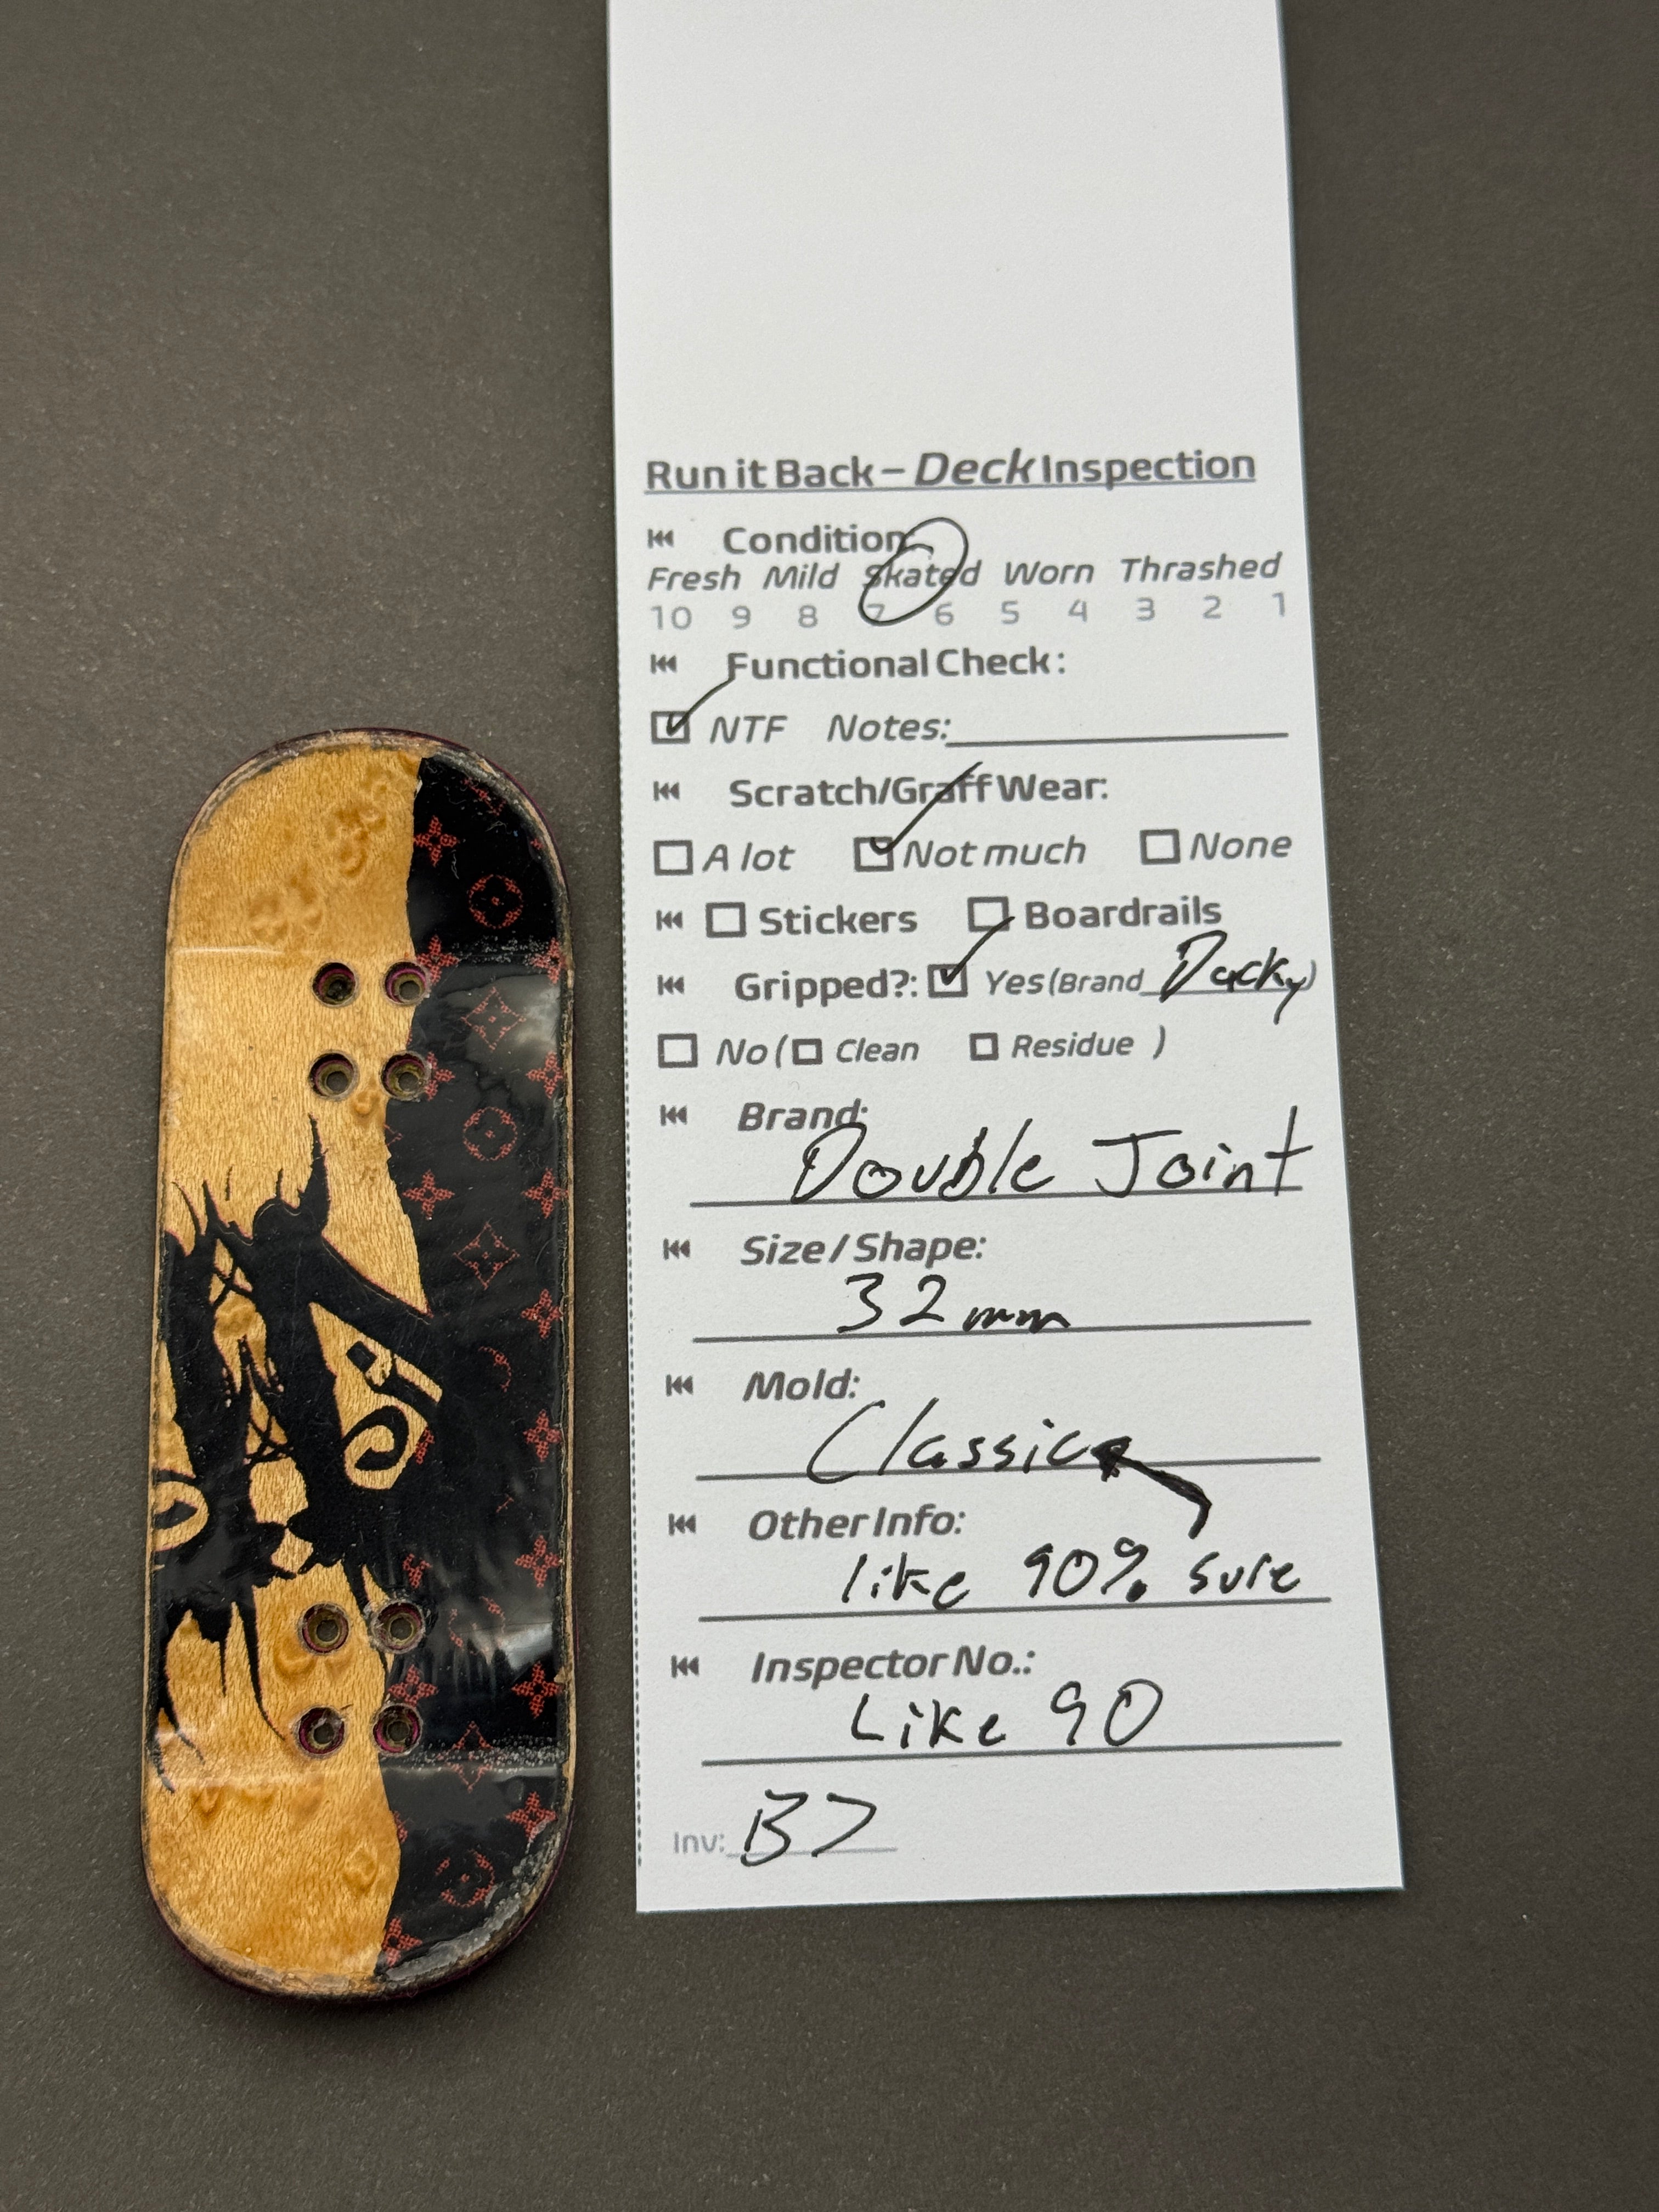 Run it Back – Deck Inspection
Condition:
Fresh Mild Skated Worn Thrashed
10 9 8 7 6 5 4 3 2 1
Functional Check:
NTF Notes:
Scratch/Graff Wear:
A lot Not much None
Stickers Boardrails
Gripped?: Yes (Brand Dacky)
No ( Clean Residue )
Brand:
Double Joint
Size / Shape:
32mm
Mold:
Classic
Other Info:
like 90% sure
Inspector No.:
Like 90
Inv: B7